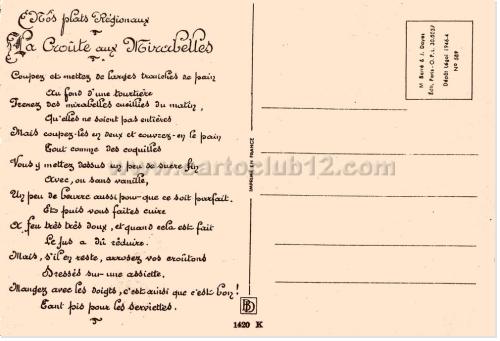 Nos plats Régionaux
La Croûte aux Mirabelles
Coupez et mettez de larges tranches de pain
Au fond d'une tourtière
Prenez des mirabelles cueillies du matin,
Qu'elles ne soient pas entières
Mais coupez-les en deux et couvrez-en le pain
Tout comme des coquilles
Vous y mettez dessus un peu de sucre fin
Avec, ou sans vanille,
Un peu de beurre aussi pour que ce soit parfait.
Et puis vous faites cuire
A feu très très doux, et quand cela est fait
Le jus a dû réduire.
Mais, s'il en reste, arrosez vos croûtons
Dressés sur une assiette.
Mangez avec les doigts, c'est ainsi que c'est bon !
Tant pis pour les serviettes.
IMPRIMÉ EN FRANCE
BD
1420 K
M. Barré & J. Dayez
Édit. Paris - O.P.L.
Dépôt Légal 1946-4
No 589
www.cartoclub12.com